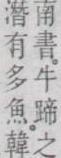 南書。牛蹄之
潛有多魚。韓